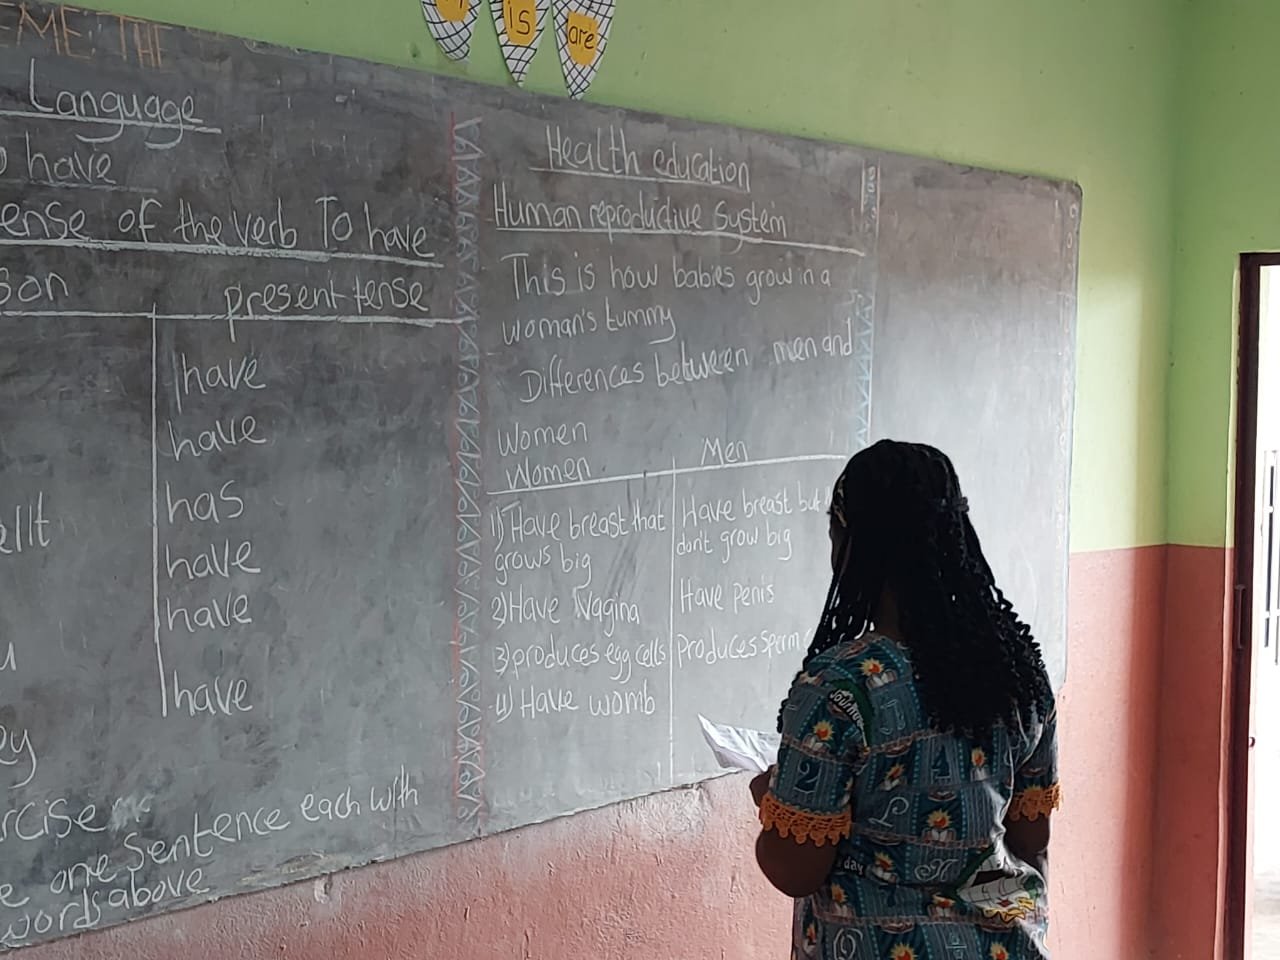 is
are
EME: THE
Language
have
ense of the verb To have
son
present tense
have
have
has
have
have
have
ellt
u
ey
rcise
e one Sentence each with
words above
Health education
Human reproductive System
This is how babies grow in a
woman's tummy
Differences between men and
Women
Women
Men
1) Have breast that
grows big
Have breast but
don't grow big
2) Have Vagina
Have penis
3) produces egg cells
Produces sperm
4) Have womb
Journ
day